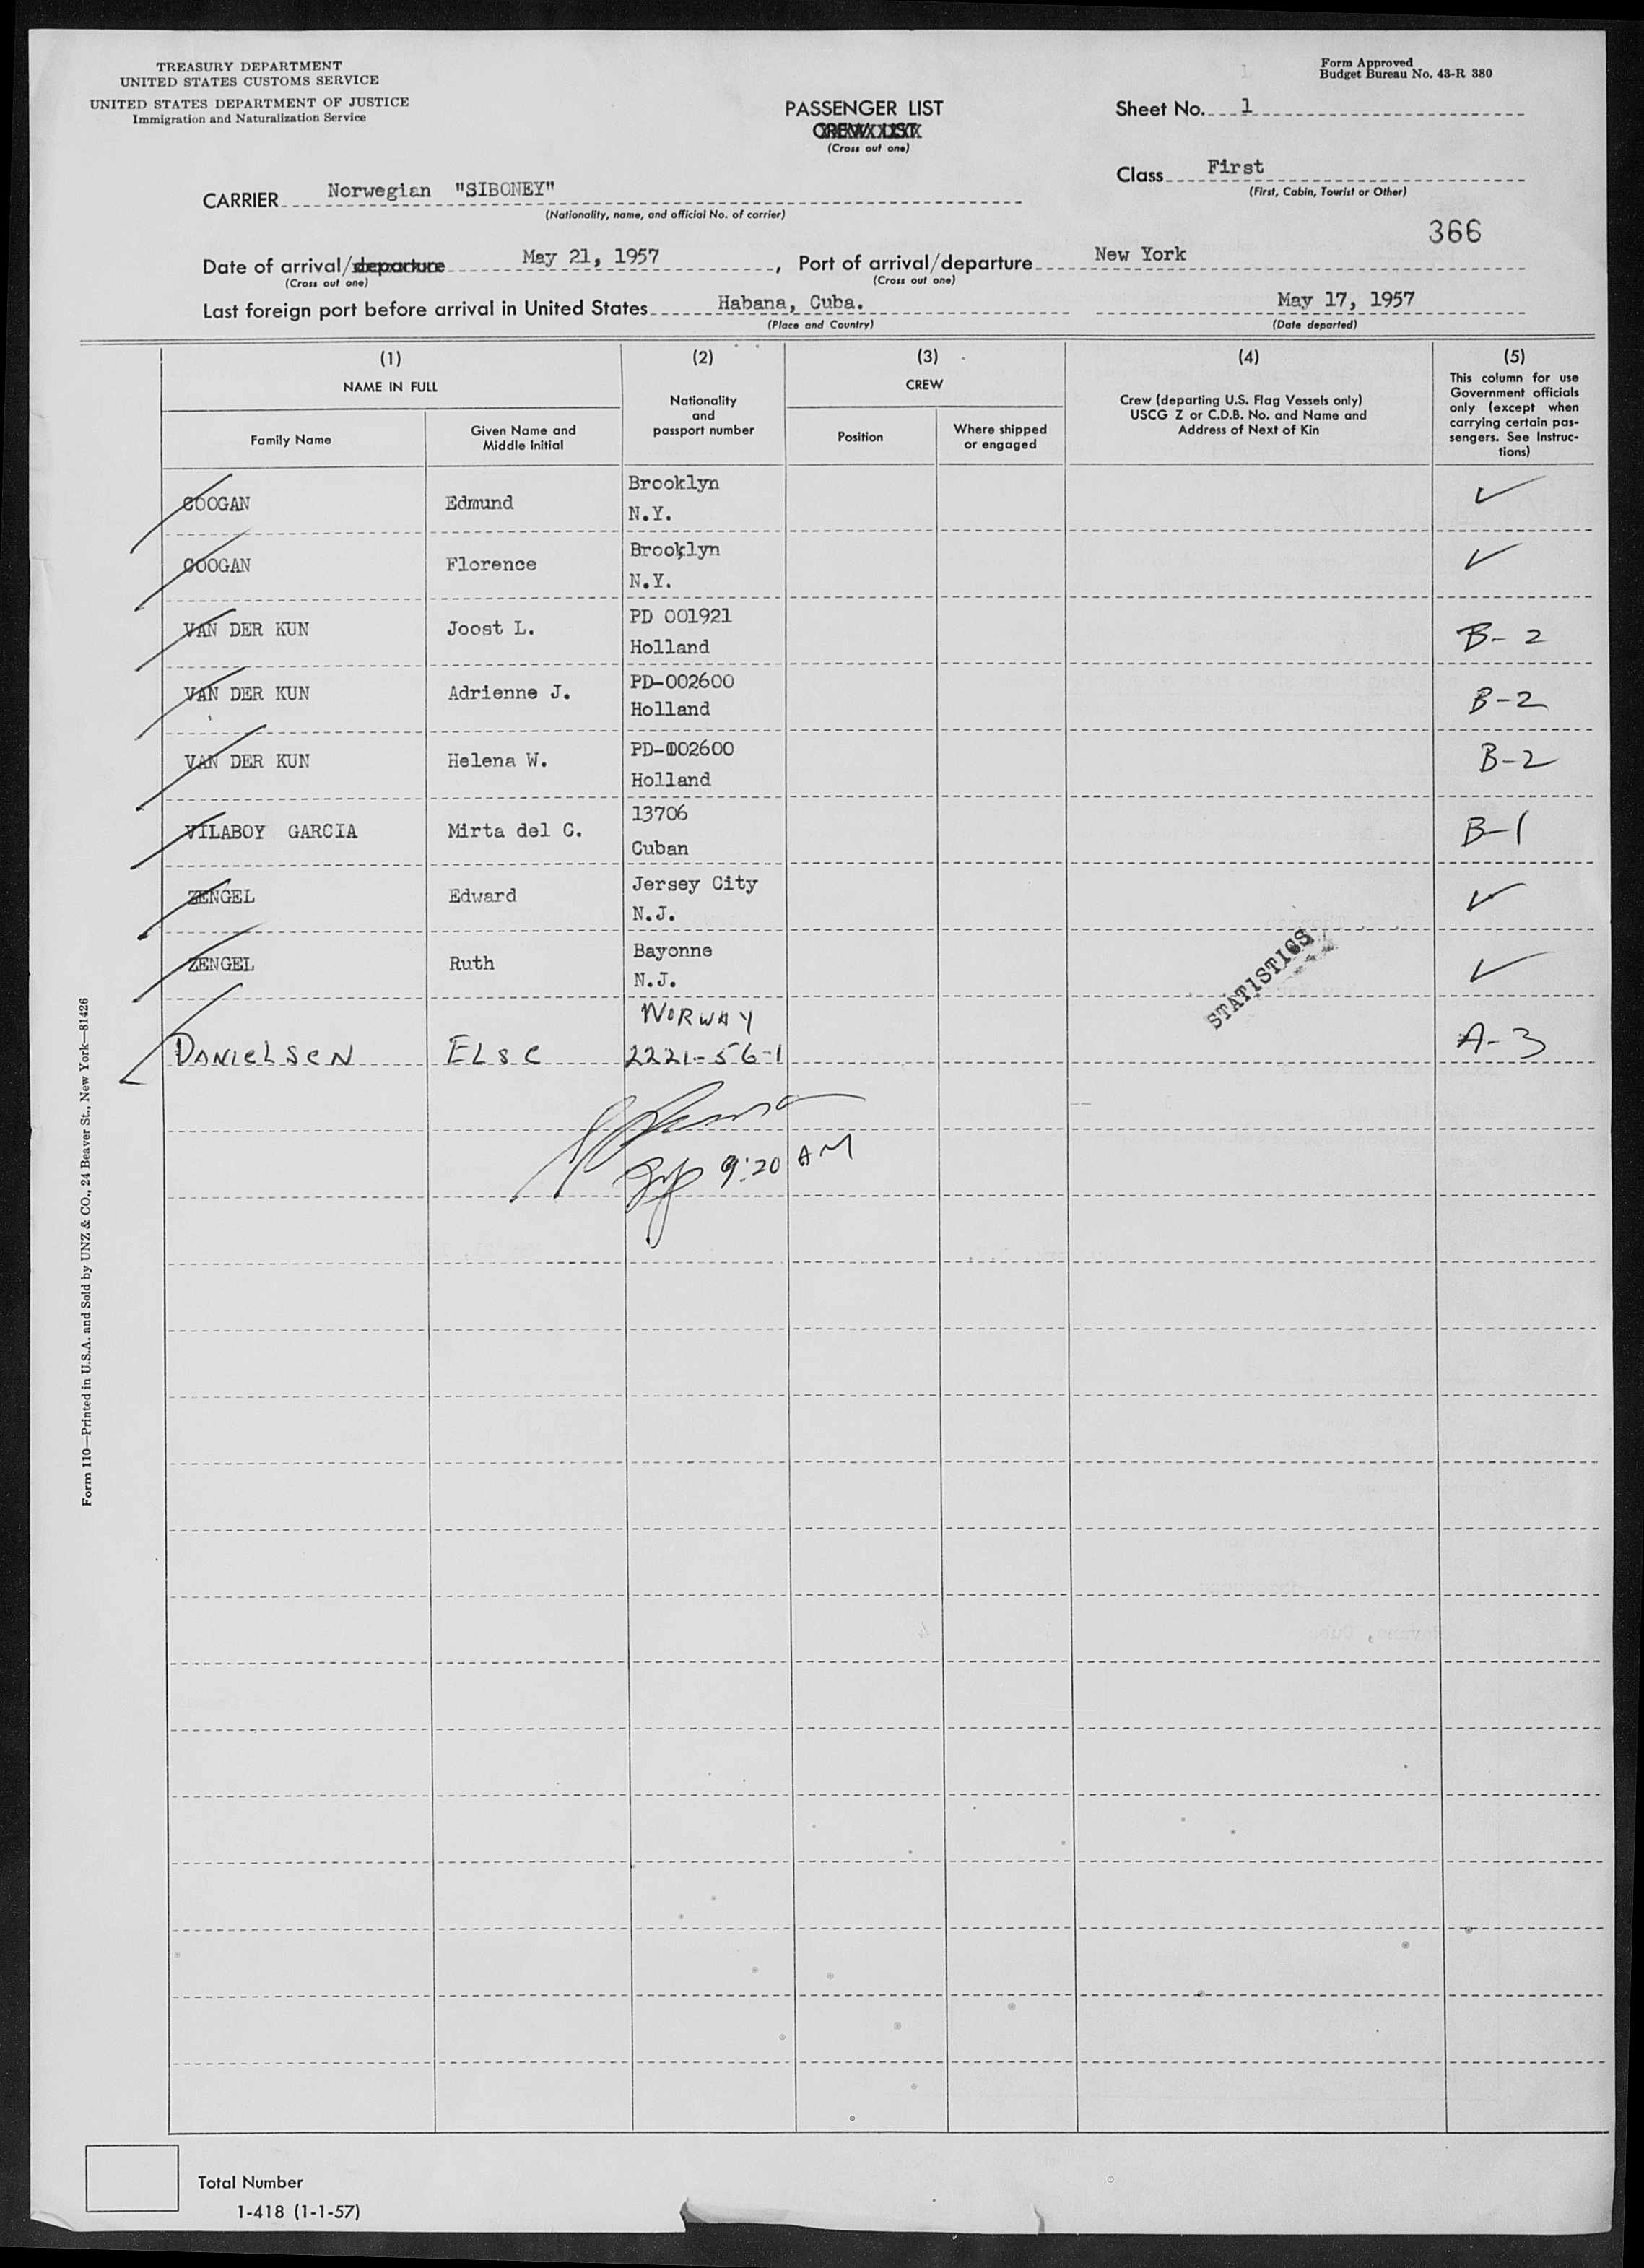 TREASURY DEPARTMENT
UNITED STATES CUSTOMS SERVICE
UNITED STATES DEPARTMENT OF JUSTICE
Immigration and Naturalization Service
Form Approved
Budget Bureau No. 43-R 380
PASSENGER LIST
CREW LIST
(Cross out one)
Sheet No. 1
Class First
(First, Cabin, Tourist or Other)
CARRIER Norwegian "SIBONEY"
(Nationality, name, and official No. of carrier)
366
Date of arrival/departure May 21, 1957, Port of arrival/departure New York
(Cross out one) (Cross out one)
Last foreign port before arrival in United States Habana, Cuba. May 17, 1957
(Place and Country) (Date departed)
(1) (2) (3) (4) (5)
NAME IN FULL
Family Name
Given Name and
Middle Initial
Nationality
and
passport number
CREW
Position
Where shipped
or engaged
Crew (departing U.S. Flag Vessels only)
USCG Z or C.D.B. No. and Name and
Address of Next of Kin
This column for use
Government officials
only (except when
carrying certain pas-
sengers. See Instruc-
tions)
COOGAN Edmund Brooklyn
N.Y.
COOGAN Florence Brooklyn
N.Y.
VAN DER KUN Joost L. PD 001921
Holland B-2
VAN DER KUN Adrienne J. PD-002600
Holland B-2
VAN DER KUN Helena W. PD-002600
Holland B-2
VILABOY GARCIA Mirta del C. 13706
Cuban B-1
ZENGEL Edward Jersey City
N.J.
ZENGEL Ruth Bayonne
N.J.
STATISTICS
NORWAY
DANIELSEN ELSE 2221-56-1 A-3
9:20 AM
Form 110—Printed in U.S.A. and Sold by UNZ & CO., 24 Beaver St., New York—81426
Total Number
1-418 (1-1-57)